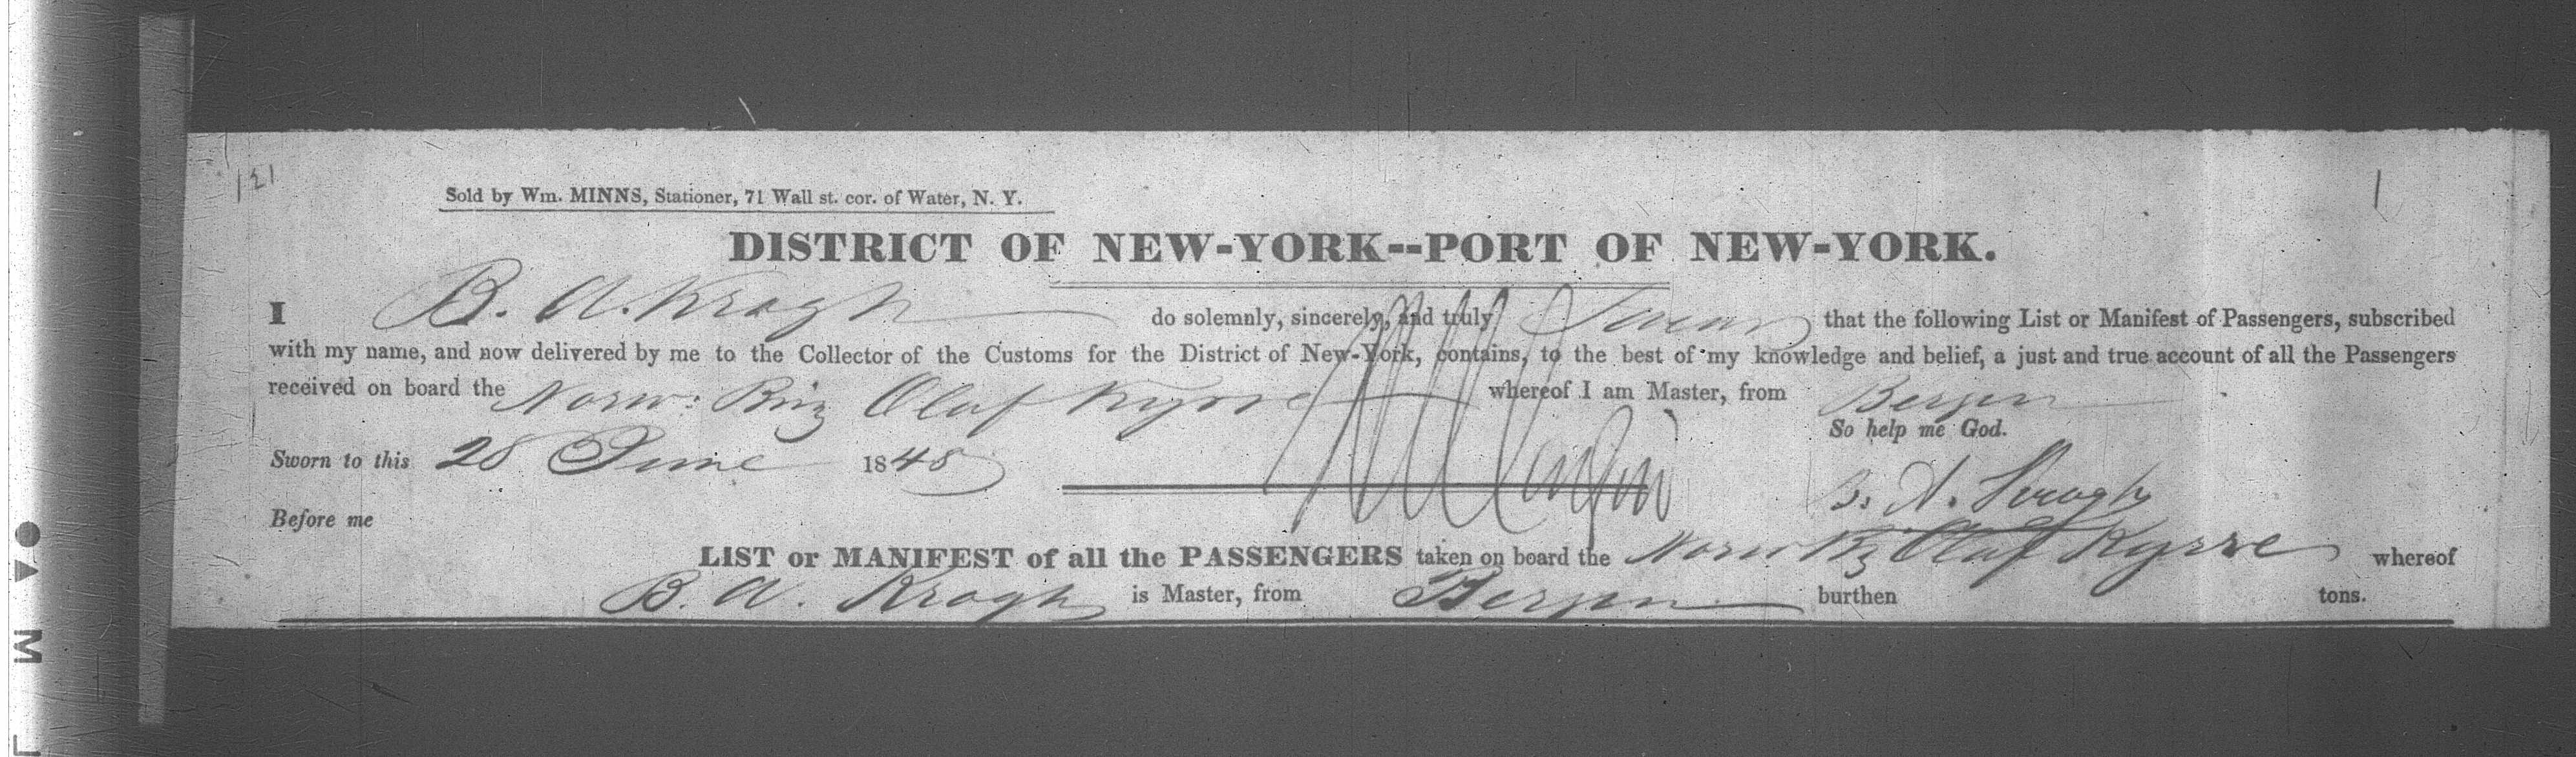 121
1
Sold by Wm. MINNS, Stationer, 71 Wall st. cor. of Water, N. Y.
DISTRICT OF NEW-YORK--PORT OF NEW-YORK.
I B. A. Krogh do solemnly, sincerely, and truly Swear that the following List or Manifest of Passengers, subscribed
with my name, and now delivered by me to the Collector of the Customs for the District of New-York, contains, to the best of my knowledge and belief, a just and true account of all the Passengers
received on board the Norw: Brig Olaf Kyrre whereof I am Master, from Bergen
So help me God.
Sworn to this 28 June 1848
B. A. Krogh
Before me
LIST or MANIFEST of all the PASSENGERS taken on board the Norw Bg Olaf Kyrre whereof
B. A. Krogh is Master, from Bergen burthen tons.